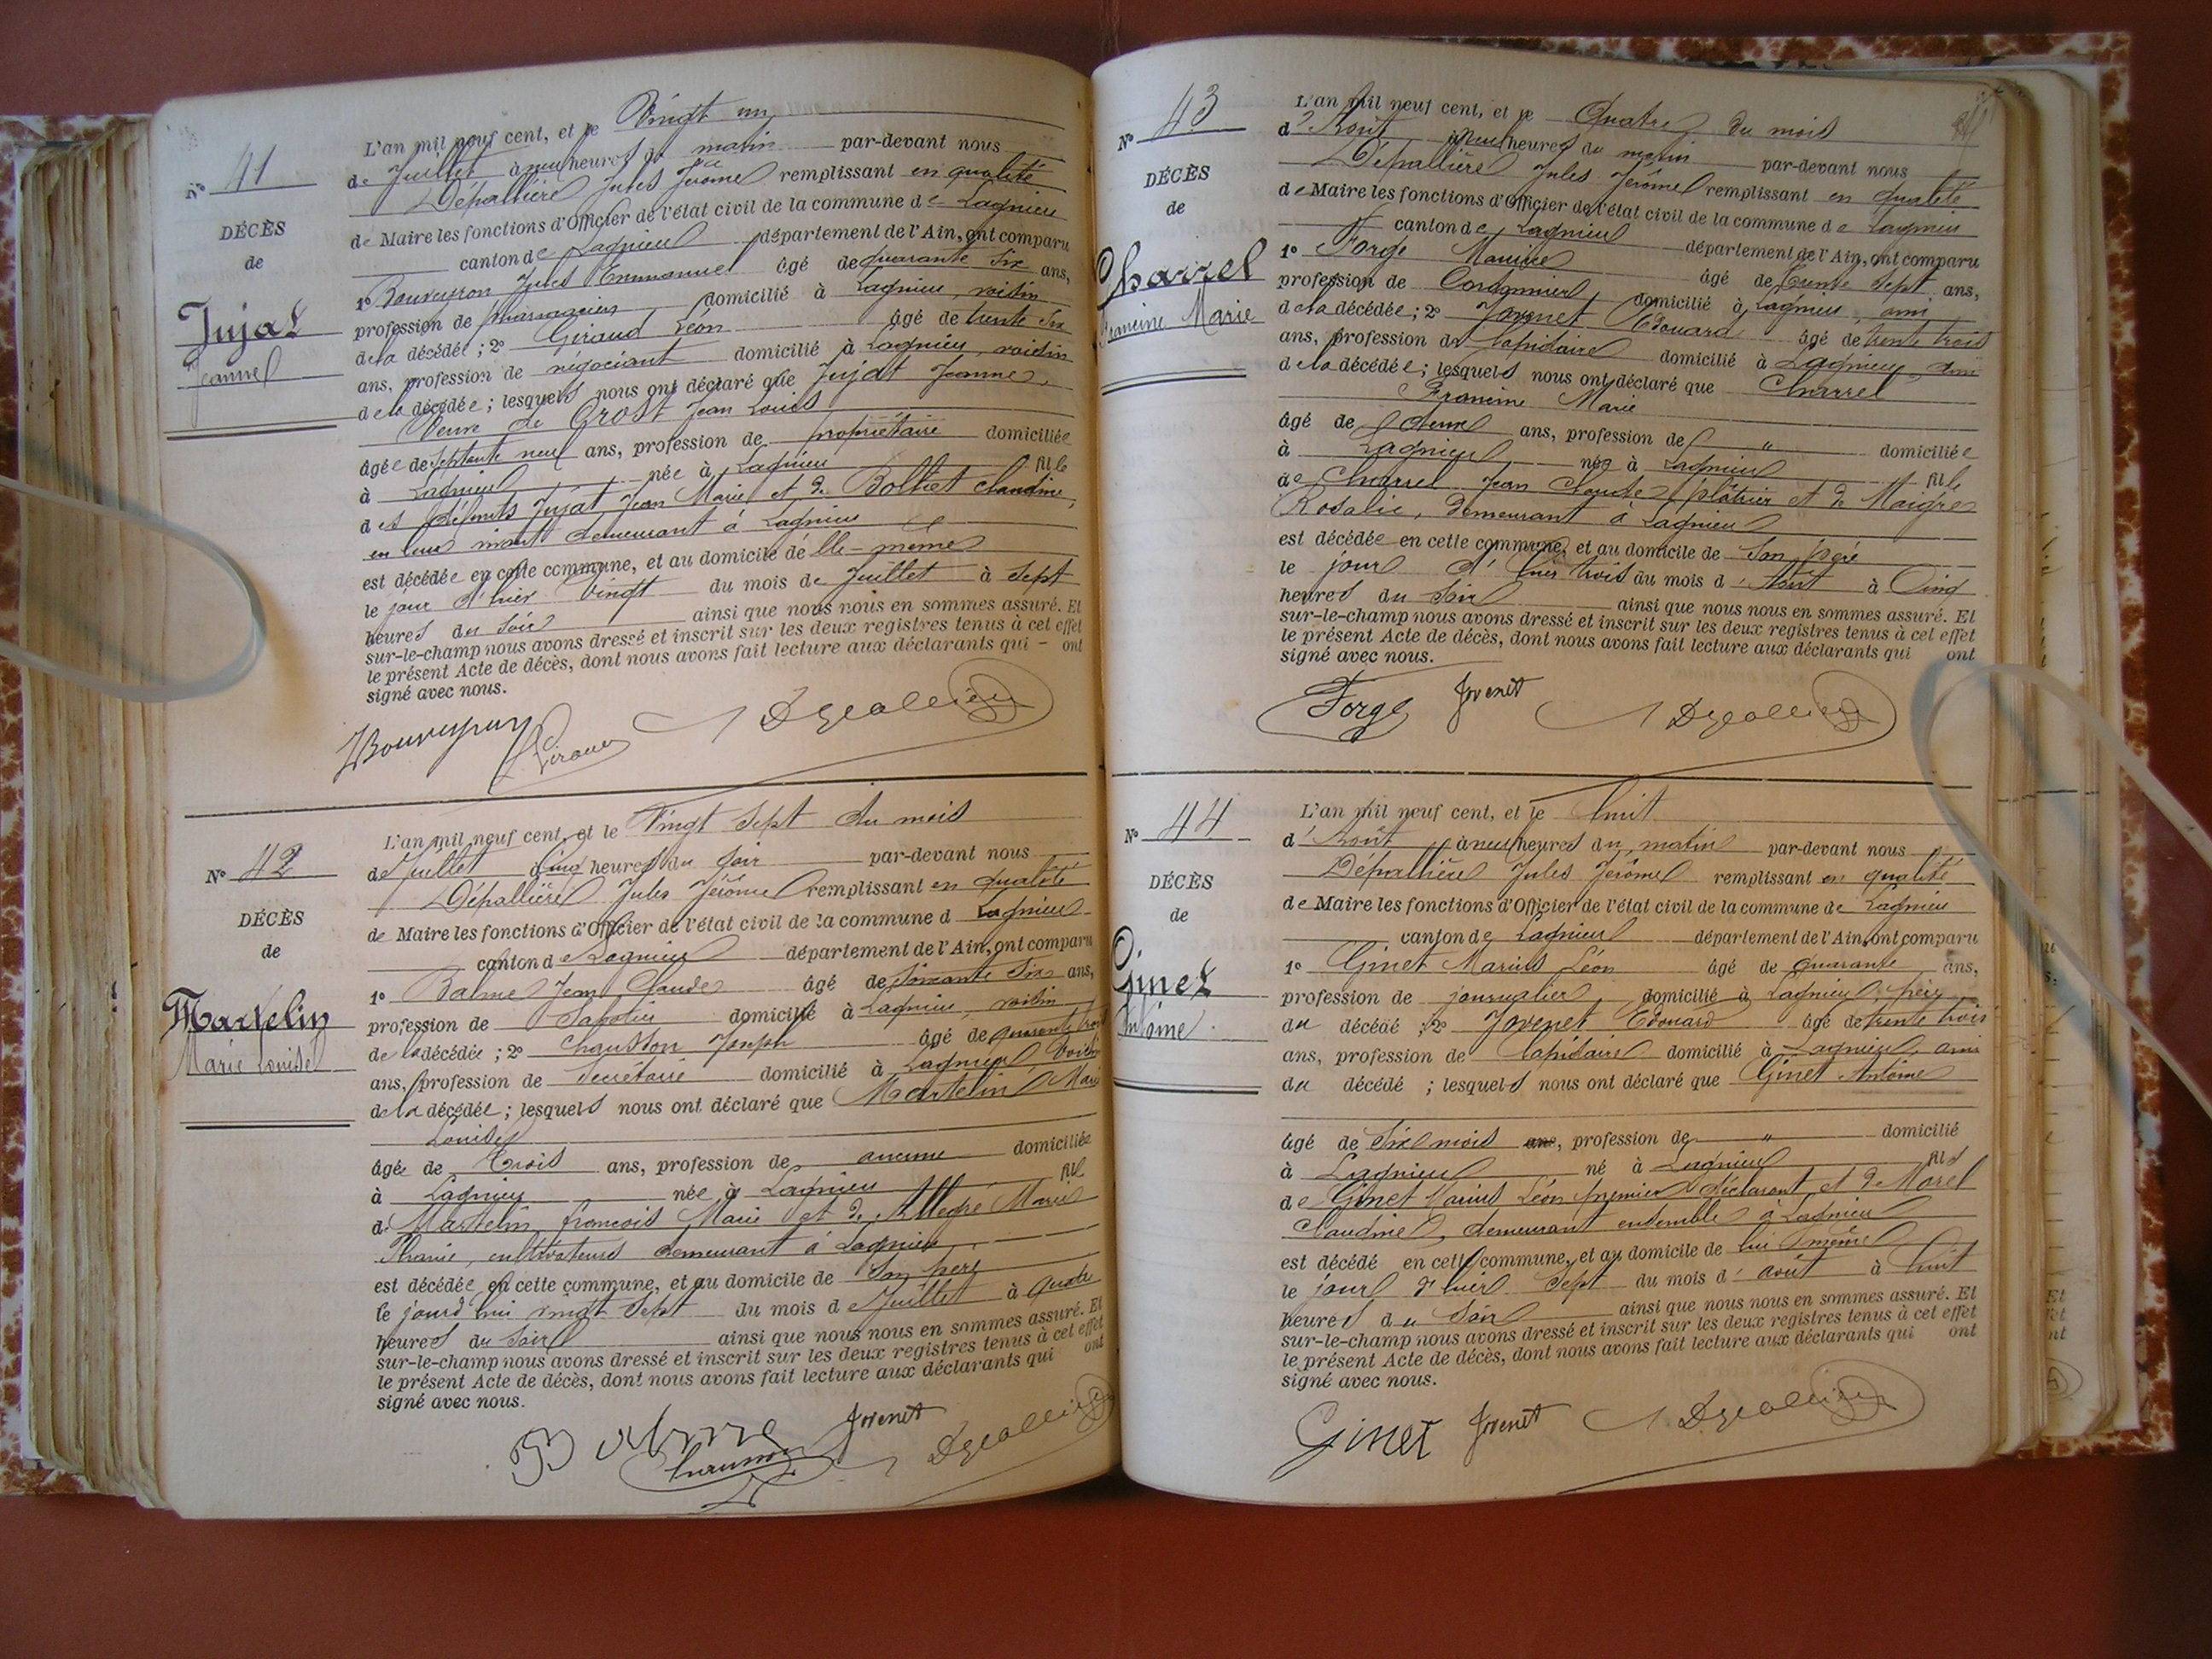 N° 41
DÉCÈS
de
Jujat
Jeanne
L'an mil neuf cent, et le Vingt un
de Juillet à neuf heures du matin par-devant nous
Dépallière Jules Jérôme remplissant en qualité
de Maire les fonctions d'Officier de l'état civil de la commune de Lagnieu
canton de Lagnieu département de l'Ain, ont comparu
1° Bouveyron Jules Emmanuel âgé de quarante six ans,
profession de pharmacien domicilié à Lagnieu, voisin
de la décédée ; 2° Giraud Léon âgé de trente six
ans, profession de négociant domicilié à Lagnieu, voisin
de la décédée ; lesquels nous ont déclaré que Jujat Jeanne,
Veuve de Grost Jean Louis
âgée de septante neuf ans, profession de propriétaire domiciliée
à Lagnieu née à Lagnieu fille
des défunts Jujat, Jean Marie et de Bolliet Claudine,
en leur vivant demeurant à Lagnieu
est décédée en cette commune, et au domicile de lle-même
le jour d'hier Vingt du mois de Juillet à sept
heures du soir ainsi que nous nous en sommes assuré. Et
sur-le-champ nous avons dressé et inscrit sur les deux registres tenus à cet effet
le présent Acte de décès, dont nous avons fait lecture aux déclarants qui - ont
signé avec nous.
JBouveyron
LGiraud
Depallière
N° 42
DÉCÈS
de
Martelin
Marie Louise
L'an mil neuf cent, et le Vingt Sept du mois
de Juillet à Cinq heures du soir par-devant nous
Dépallière Jules Jérôme remplissant en qualité
de Maire les fonctions d'Officier de l'état civil de la commune d Lagnieu
canton de Lagnieu département de l'Ain, ont comparu
1° Balme Jean Claude âgé de soixante six ans,
profession de Sabotier domicilié à Lagnieu, voisin
de la décédée ; 2° Chausson Joseph âgé de quarante trois
ans, profession de Secrétaire domicilié à Lagnieu, voisin
de la décédée ; lesquels nous ont déclaré que Martelin Marie
Louise
âgée de Trois ans, profession de aucune domiciliée
à Lagnieu née à Lagnieu fil
de Martelin françois Marie et de Allegré Marie
Phanie, cultivateurs demeurant à Lagnieu
est décédée en cette commune, et au domicile de son père
le jourd'hui vingt sept du mois de Juillet à quatre
heures du soir ainsi que nous nous en sommes assuré. Et
sur-le-champ nous avons dressé et inscrit sur les deux registres tenus à cet effet
le présent Acte de décès, dont nous avons fait lecture aux déclarants qui ont
signé avec nous.
Balme
Chausson
Jovenet
Depallière
N° 43
DÉCÈS
de
Charrel
Francine Marie
L'an mil neuf cent, et le Quatre du mois
d'Août à neuf heures du matin par-devant nous
Dépallière Jules Jérôme remplissant en qualité
de Maire les fonctions d'Officier de l'état civil de la commune de Lagnieu
canton de Lagnieu département de l'Ain, ont comparu
1° Forge Maurice âgé de trente sept ans,
profession de Cordonnier, domicilié à Lagnieu, ami
de la décédée ; 2° Jovenet Edouard âgé de trente trois
ans, profession de lapidaire domicilié à Lagnieu, ami
de la décédée ; lesquels nous ont déclaré que Charrel
Francine Marie
âgé de deux ans, profession de " domiciliée
à Lagnieu née à Lagnieu fille
de Charrel Jean Claude plâtrier et de Maigre
Rosalie, demeurant à Lagnieu
est décédée en cette commune, et au domicile de son père
le jour d'hier trois du mois d'Août à Cinq
heures du soir ainsi que nous nous en sommes assuré. Et
sur-le-champ nous avons dressé et inscrit sur les deux registres tenus à cet effet
le présent Acte de décès, dont nous avons fait lecture aux déclarants qui ont
signé avec nous.
Forge
Jovenet
Depallière
N° 44
DÉCÈS
de
Ginet
Antoine
L'an mil neuf cent, et le huit
d'Août à neuf heures du matin par-devant nous
Dépallière Jules Jérôme remplissant en qualité
de Maire les fonctions d'Officier de l'état civil de la commune de Lagnieu
canton de Lagnieu département de l'Ain, ont comparu
1° Ginet Marius Léon âgé de quarante ans,
profession de journalier, domicilié à Lagnieu, père
du décédé ; 2° Jovenet Edouard âgé de trente trois
ans, profession de lapidaire domicilié à Lagnieu, ami
du décédé ; lesquels nous ont déclaré que Ginet Antoine
âgé de six mois ans, profession de " domicilié
à Lagnieu né à Lagnieu fils
de Ginet Marius Léon premier déclarant et de Morel
Claudine, demeurant ensemble à Lagnieu
est décédé en cette commune, et au domicile de lui même
le jour d'hier sept du mois d'août à huit
heures du soir ainsi que nous nous en sommes assuré. Et
sur-le-champ nous avons dressé et inscrit sur les deux registres tenus à cet effet
le présent Acte de décès, dont nous avons fait lecture aux déclarants qui ont
signé avec nous.
Ginet
Jovenet
Depallière